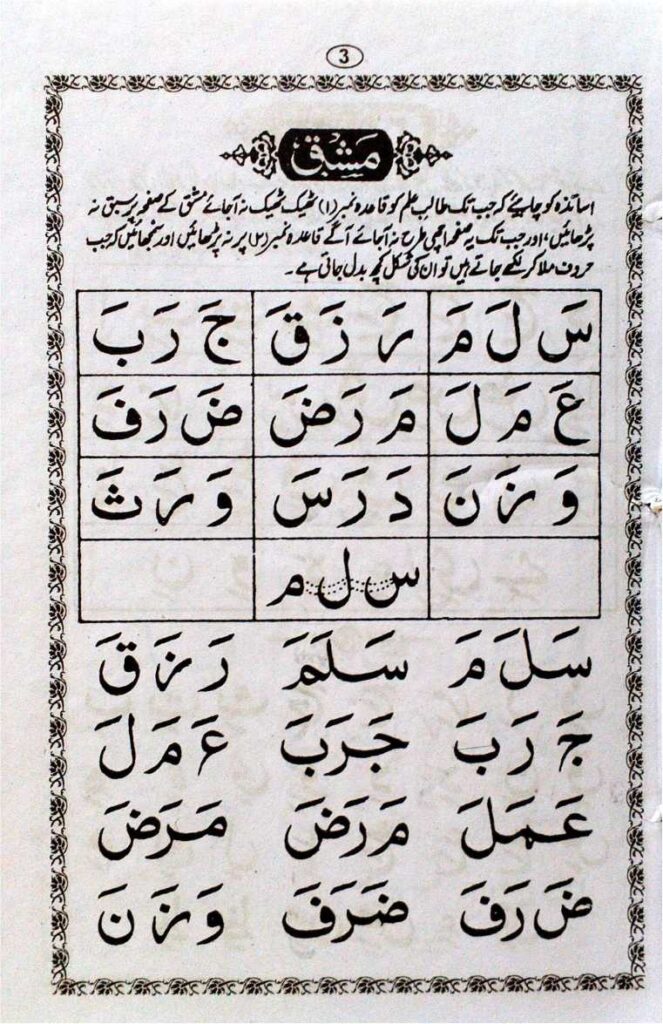 3
مَشق
اساتذہ کو چاہیئے کہ جب تک طالب علم کو قاعدہ نمبر (۱) ٹھیک ٹھیک نہ آجائے مشق کے صفحہ پر سبق نہ
پڑھائیں، اور جب تک یہ صفحہ اچھی طرح نہ آجائے آگے قاعدہ نمبر (۲) پر نہ پڑھائیں اور سمجھائیں کہ جب
حروف ملا کر لکھے جاتے ہیں تو ان کی شکل کچھ بدل جاتی ہے۔
سَ لَ مَ رَ زَ قَ جَ رَ بَ
عَ مَ لَ مَ رَ ضَ ضَ رَ فَ
وَ زَ نَ دَ رَ سَ وَ رَ ثَ
س ل م
سَلَ مَ سَلَمَ رَ زَ قَ
جَ رَ بَ جَرَبَ عَ مَ لَ
عَمَلَ مَ رَ ضَ مَرَضَ
ضَ رَ فَ ضَرَفَ وَ زَ نَ